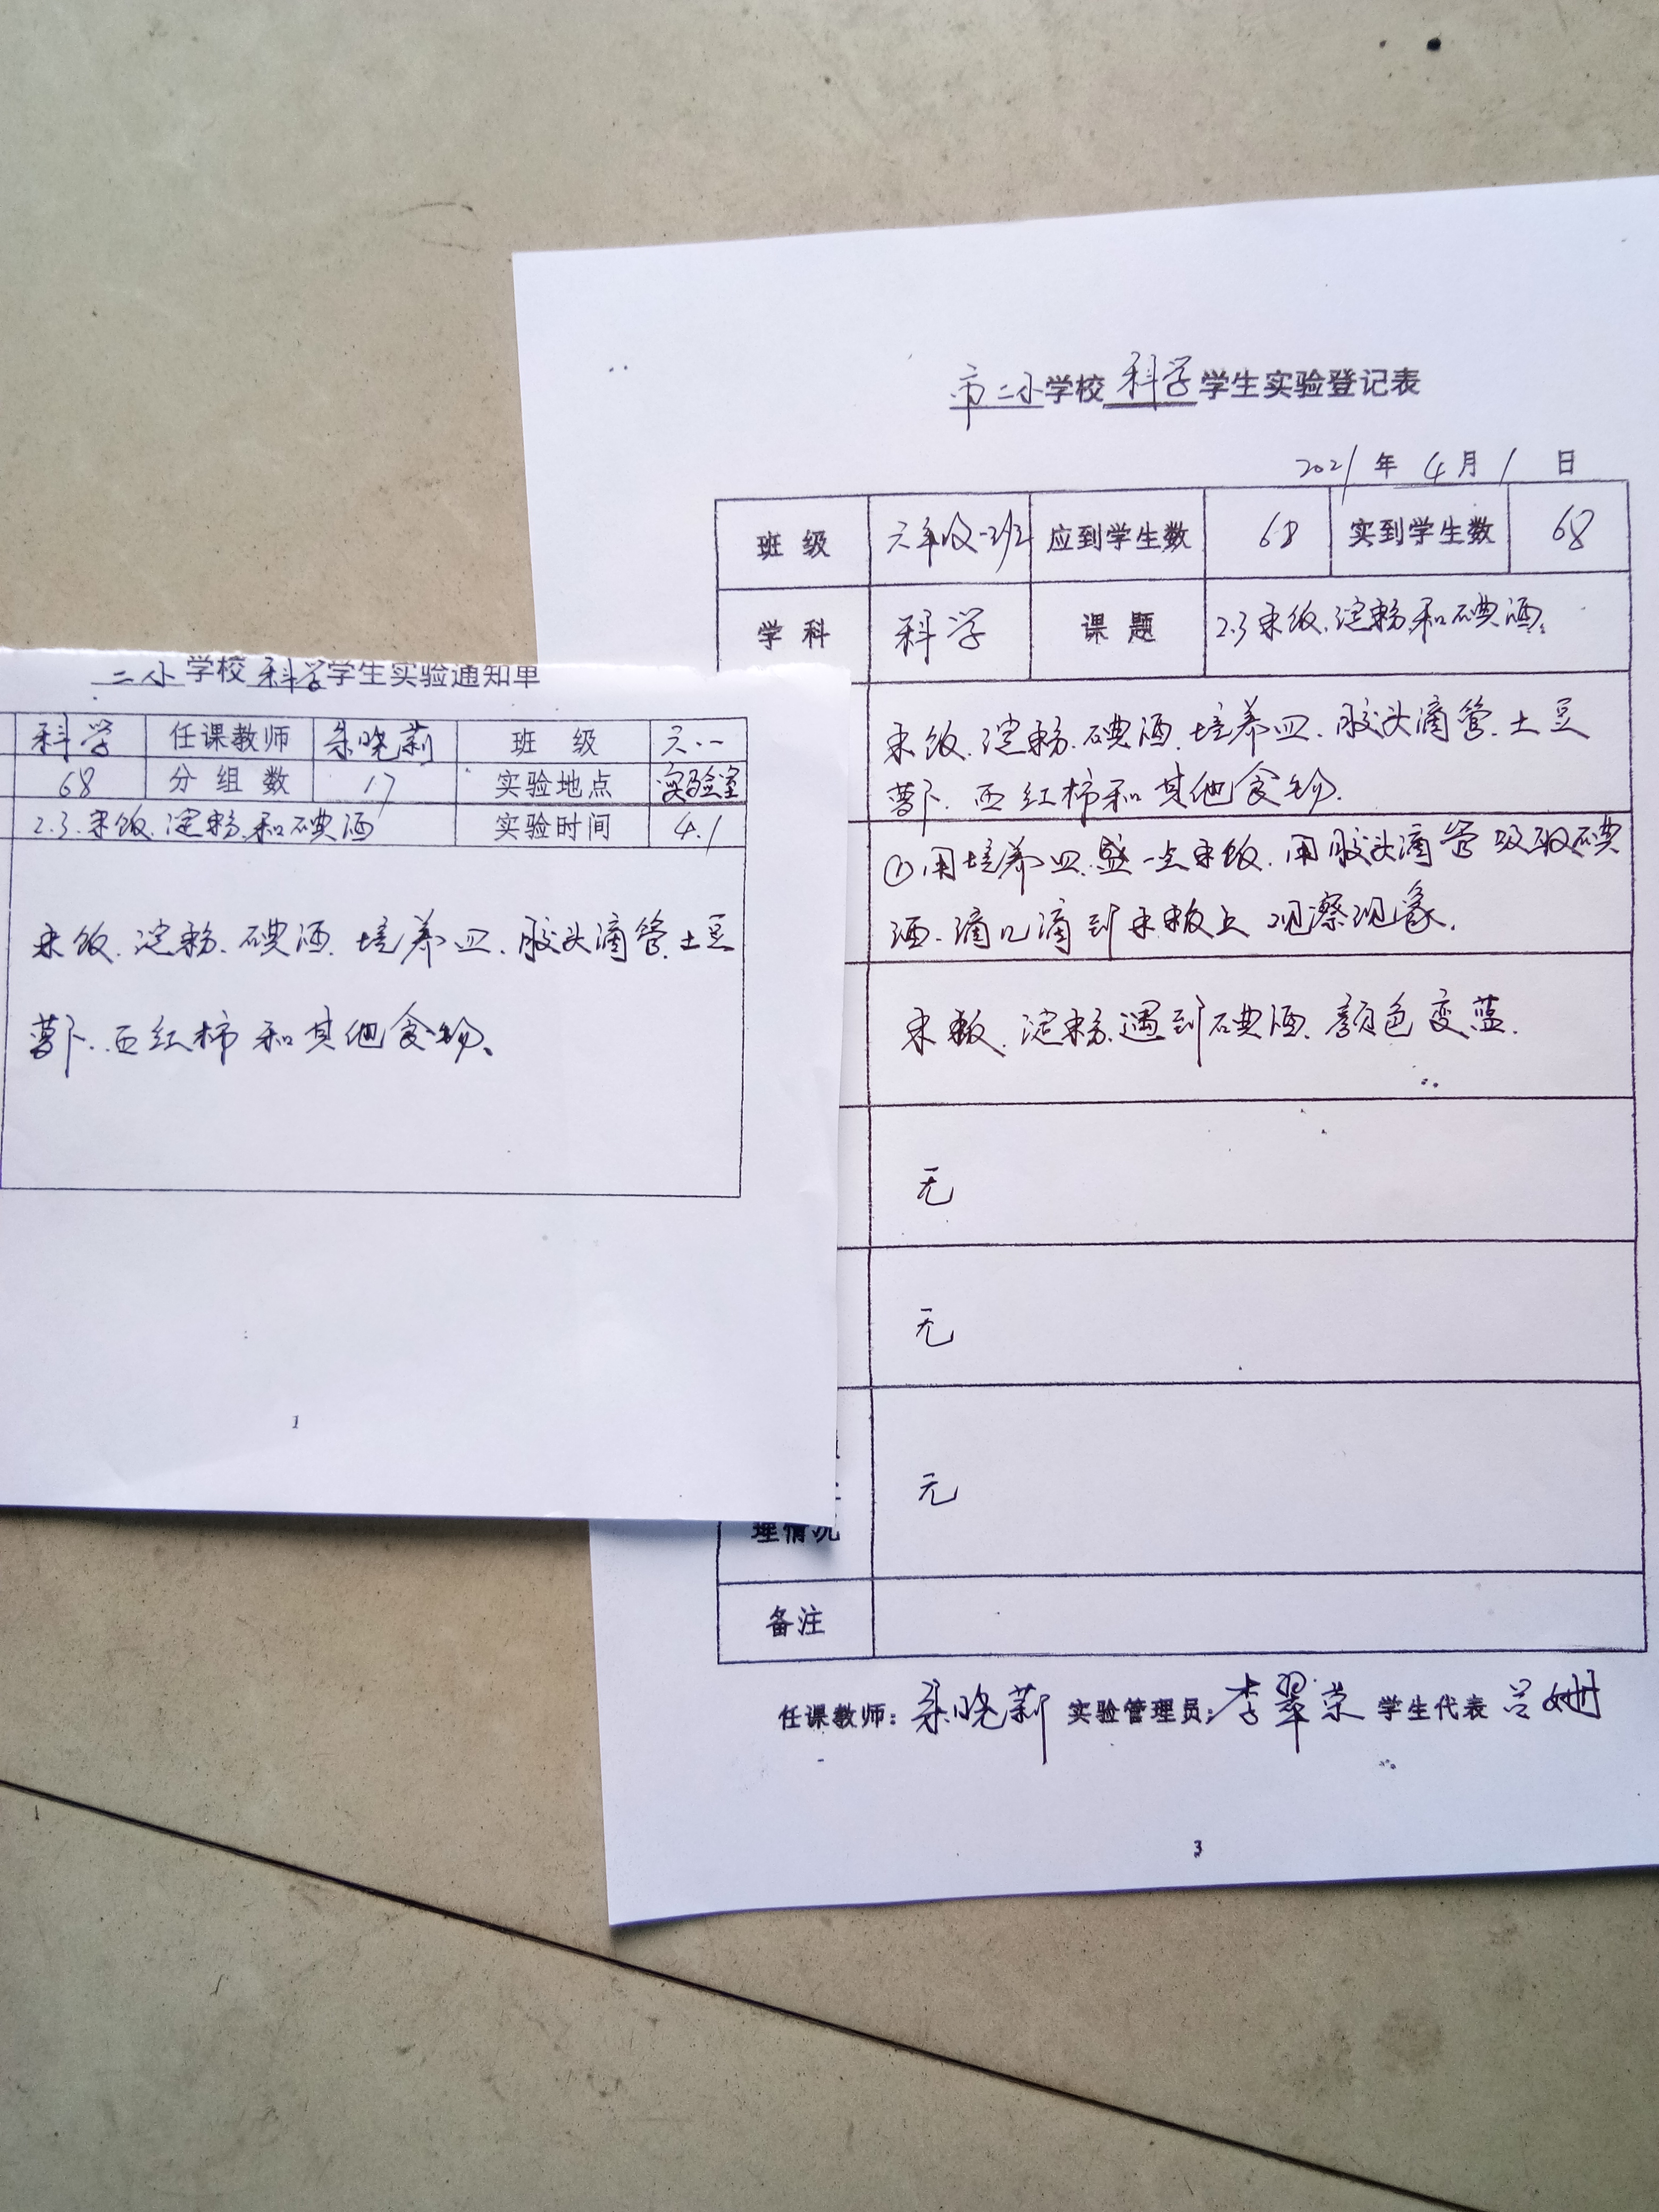 市二小学校 科学 学生实验登记表
2021 年 4 月 1 日
班 级 六年级一班 应到学生数 68 实到学生数 68
学 科 科学 课 题 2.3米饭、淀粉和碘酒
米饭、淀粉、碘酒、培养皿、胶头滴管、土豆
萝卜、西红柿和其他食物.
①用培养皿盛一点米饭、用胶头滴管吸取碘
酒、滴几滴到米饭上 观察现象.
米饭、淀粉遇到碘酒、颜色变蓝.
无
无
无
理情况
备注
任课教师: 晓莉 实验管理员: 李翠荣 学生代表 吕姗
3
二小学校 科学 学生实验通知单
科学 任课教师 晓莉 班 级 六.一
68 分 组 数 17 实验地点 实验室
2.3.米饭、淀粉和碘酒 实验时间 4.1
米饭、淀粉、碘酒、培养皿、胶头滴管、土豆
萝卜、西红柿和其他食物、
1